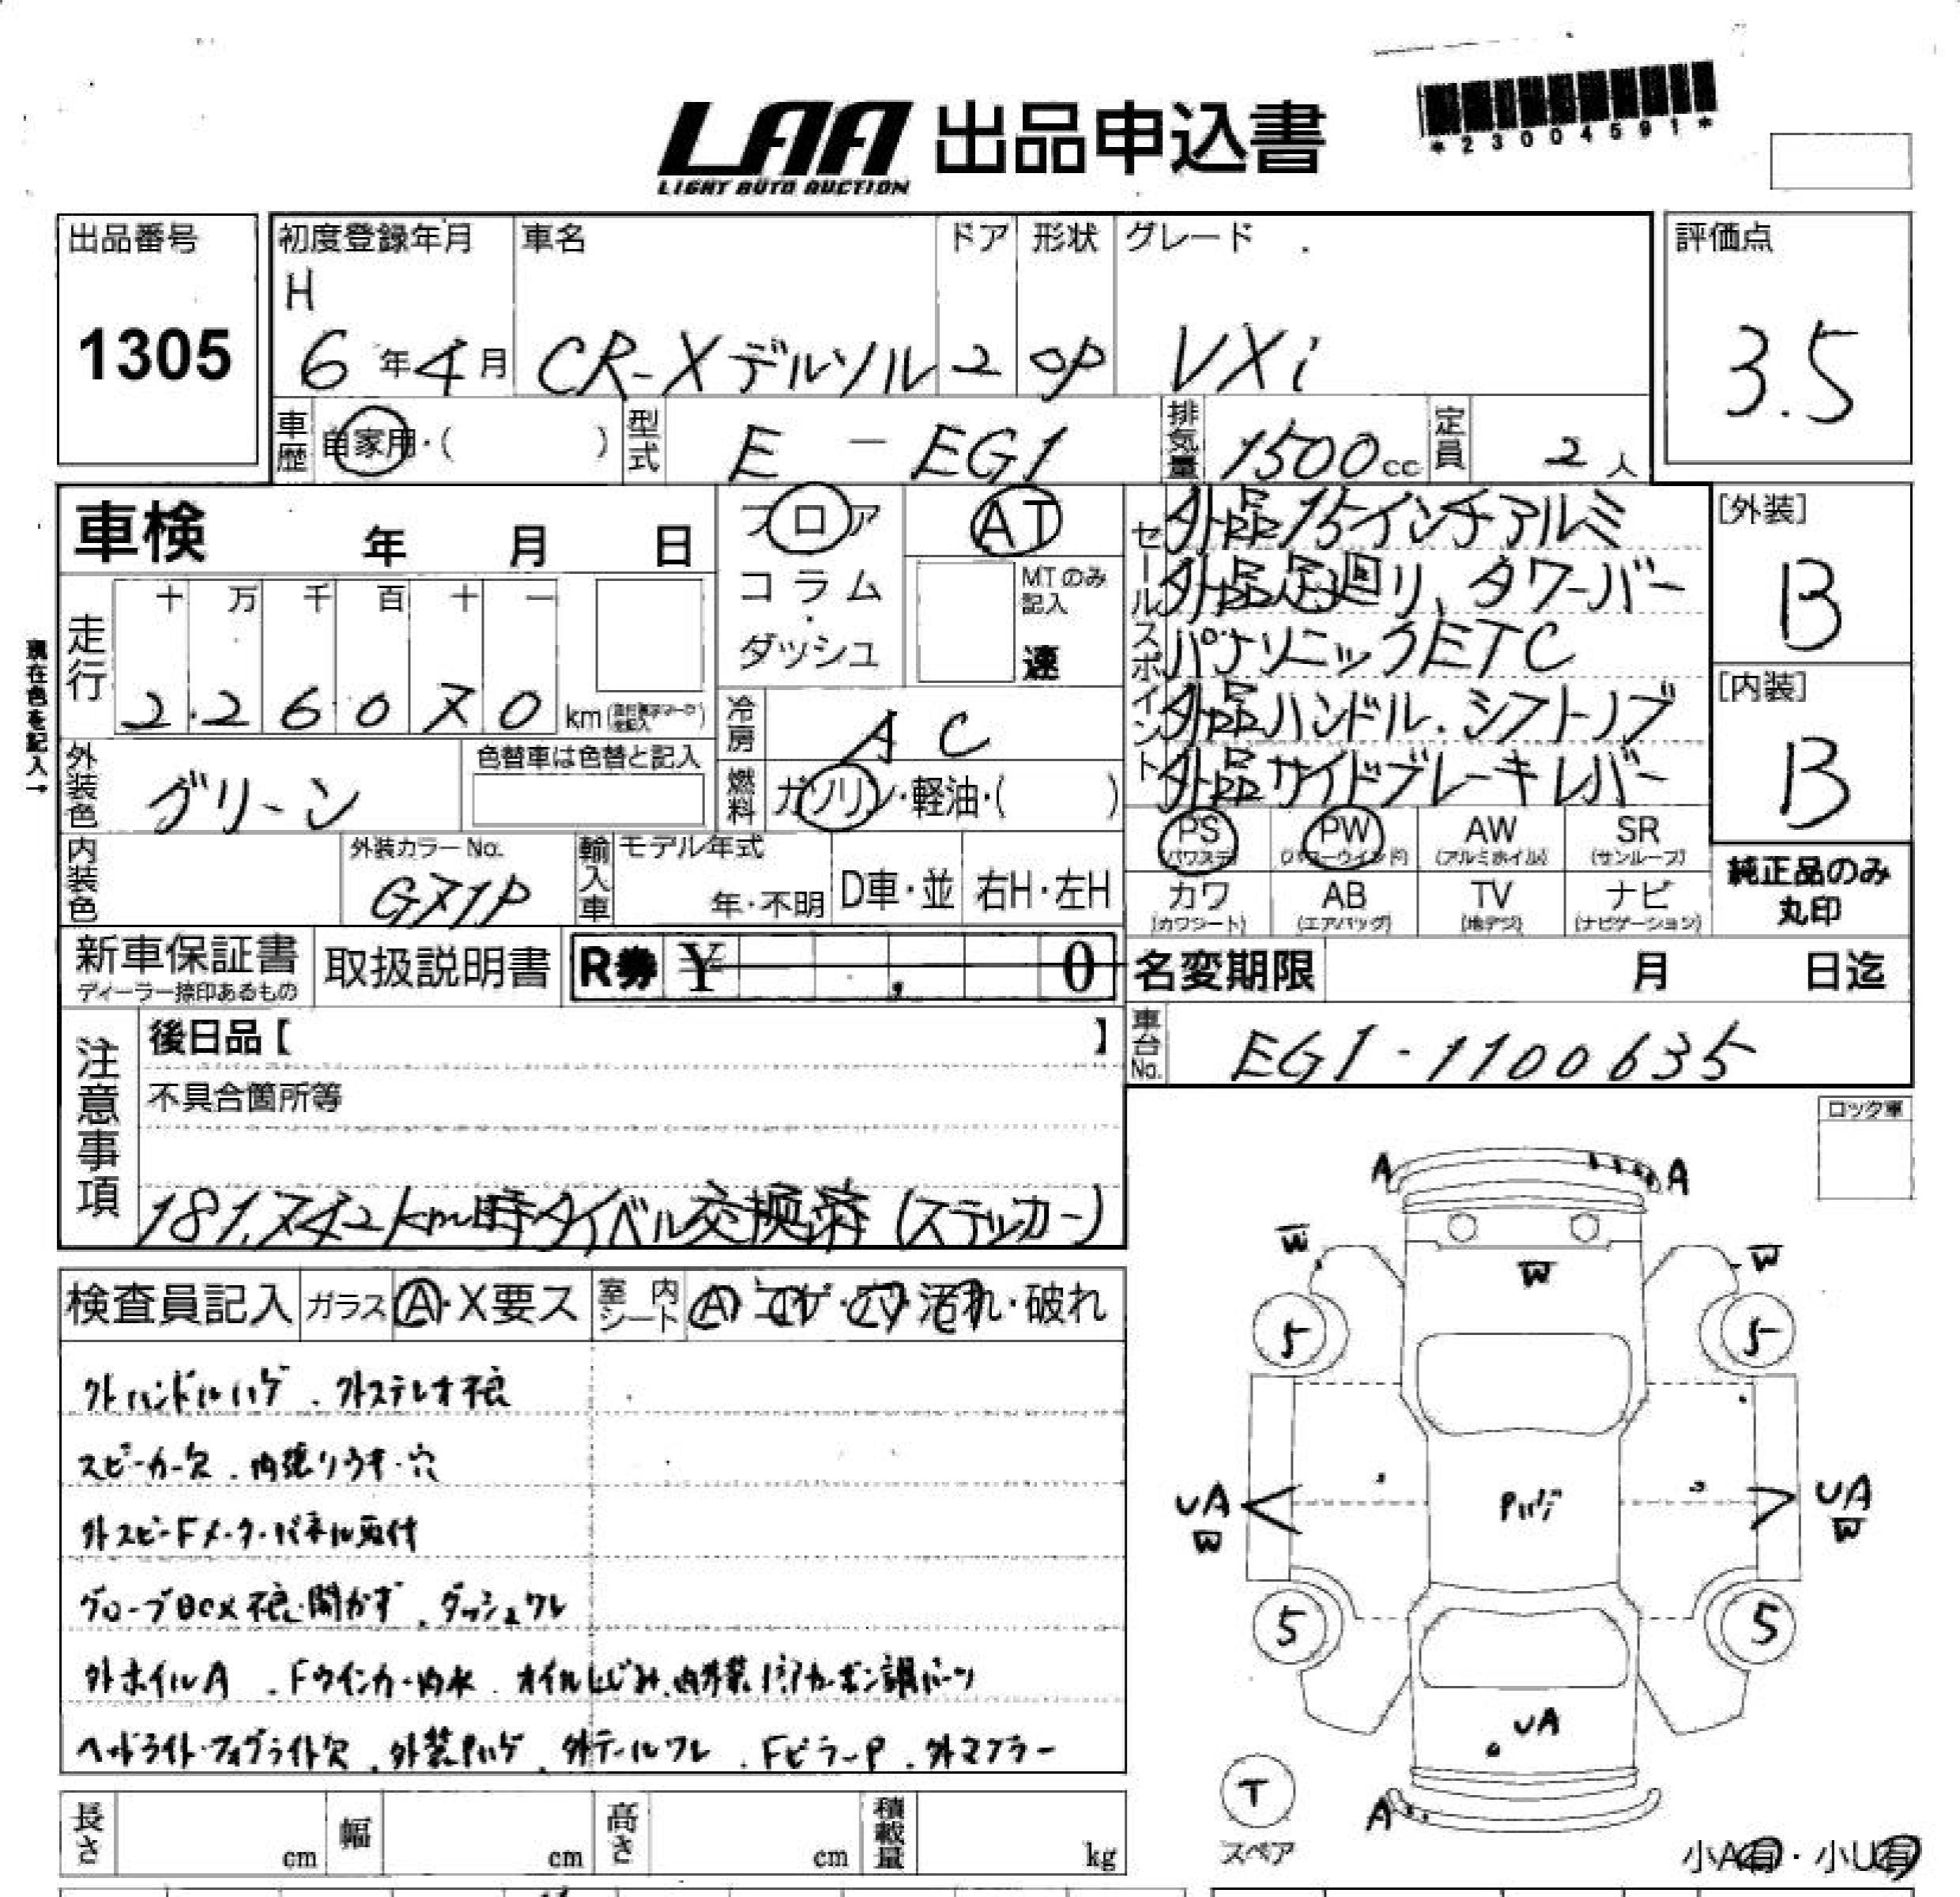 LAA 出品申込書
LIGHT AUTO AUCTION
*23004591*
出品番号
1305
初度登録年月 車名 ドア 形状 グレード
H
6年4月 CR-Xデルソル 2 OP VXi
評価点
3.5
車歴 自家用・( ) 型式 E - EG1 排気量 1500cc 定員 2人
車検 年 月 日
フロア AT
コラム
ダッシュ
MTのみ記入
速
セールスポイント
外品15インチアルミ
外品足廻り、タワーバー
パナソニックETC
外品ハンドル.シフトノブ
外品サイドブレーキレバー
[外装]
B
[内装]
B
現在色を記入→
走行
十 万 千 百 十 一
2 2 6 0 7 0 km
冷房 AC
燃料 ガソリン・軽油・( )
外装色 グリーン
色替車は色替と記入
内装色
外装カラーNo.
G71P
輸入車 モデル年式
年・不明 D車・並 右H・左H
PS (パワステ) PW (パワーウインドウ) AW (アルミホイル) SR (サンルーフ)
カワ (カワシート) AB (エアバッグ) TV (地デジ) ナビ (ナビゲーション)
純正品のみ
丸印
新車保証書
ディーラー捺印あるもの
取扱説明書 R券 ¥ , 0
名変期限 月 日迄
車台No. EG1-1100635
注意事項
後日品【 】
不具合箇所等
181,742km時タイベル交換済(ステッカー)
ロック車
検査員記入 ガラス A・X要ス 室内シート A・コゲ・穴・汚れ・破れ
外ハンドルハゲ.外ステレオ不良
スピーカー欠.内張りうき・穴
外スピードメーターパネル取付
グローブBOX不良・開かず.ダッシュワレ
外ホイルA.Fウインカー内水.オイルにじみ.内外装リアカーボン調パーツ
ヘッドライト・フォグライト欠.外装Pハゲ.外テールワレ.FピラーP.外マフラー
A A
W W
W
5 5
UA UA
W W
Pハゲ
5 5
UA
T
A
スペア
小A有・小U有
長さ cm 幅 cm 高さ cm 積載量 kg